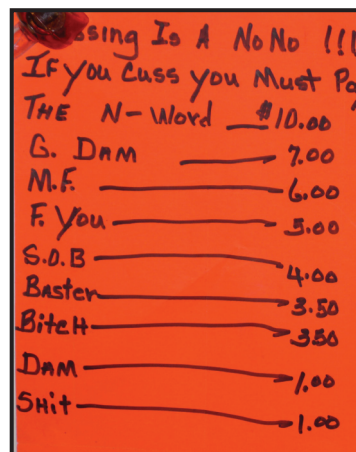 ssing Is A No No !!!
IF you Cuss you Must Pa
THE N-Word $10.00
G. DAM 7.00
M.F. 6.00
F. You 5.00
S.O.B 4.00
Baster 3.50
BitcH 3.50
DAM 1.00
SHit 1.00